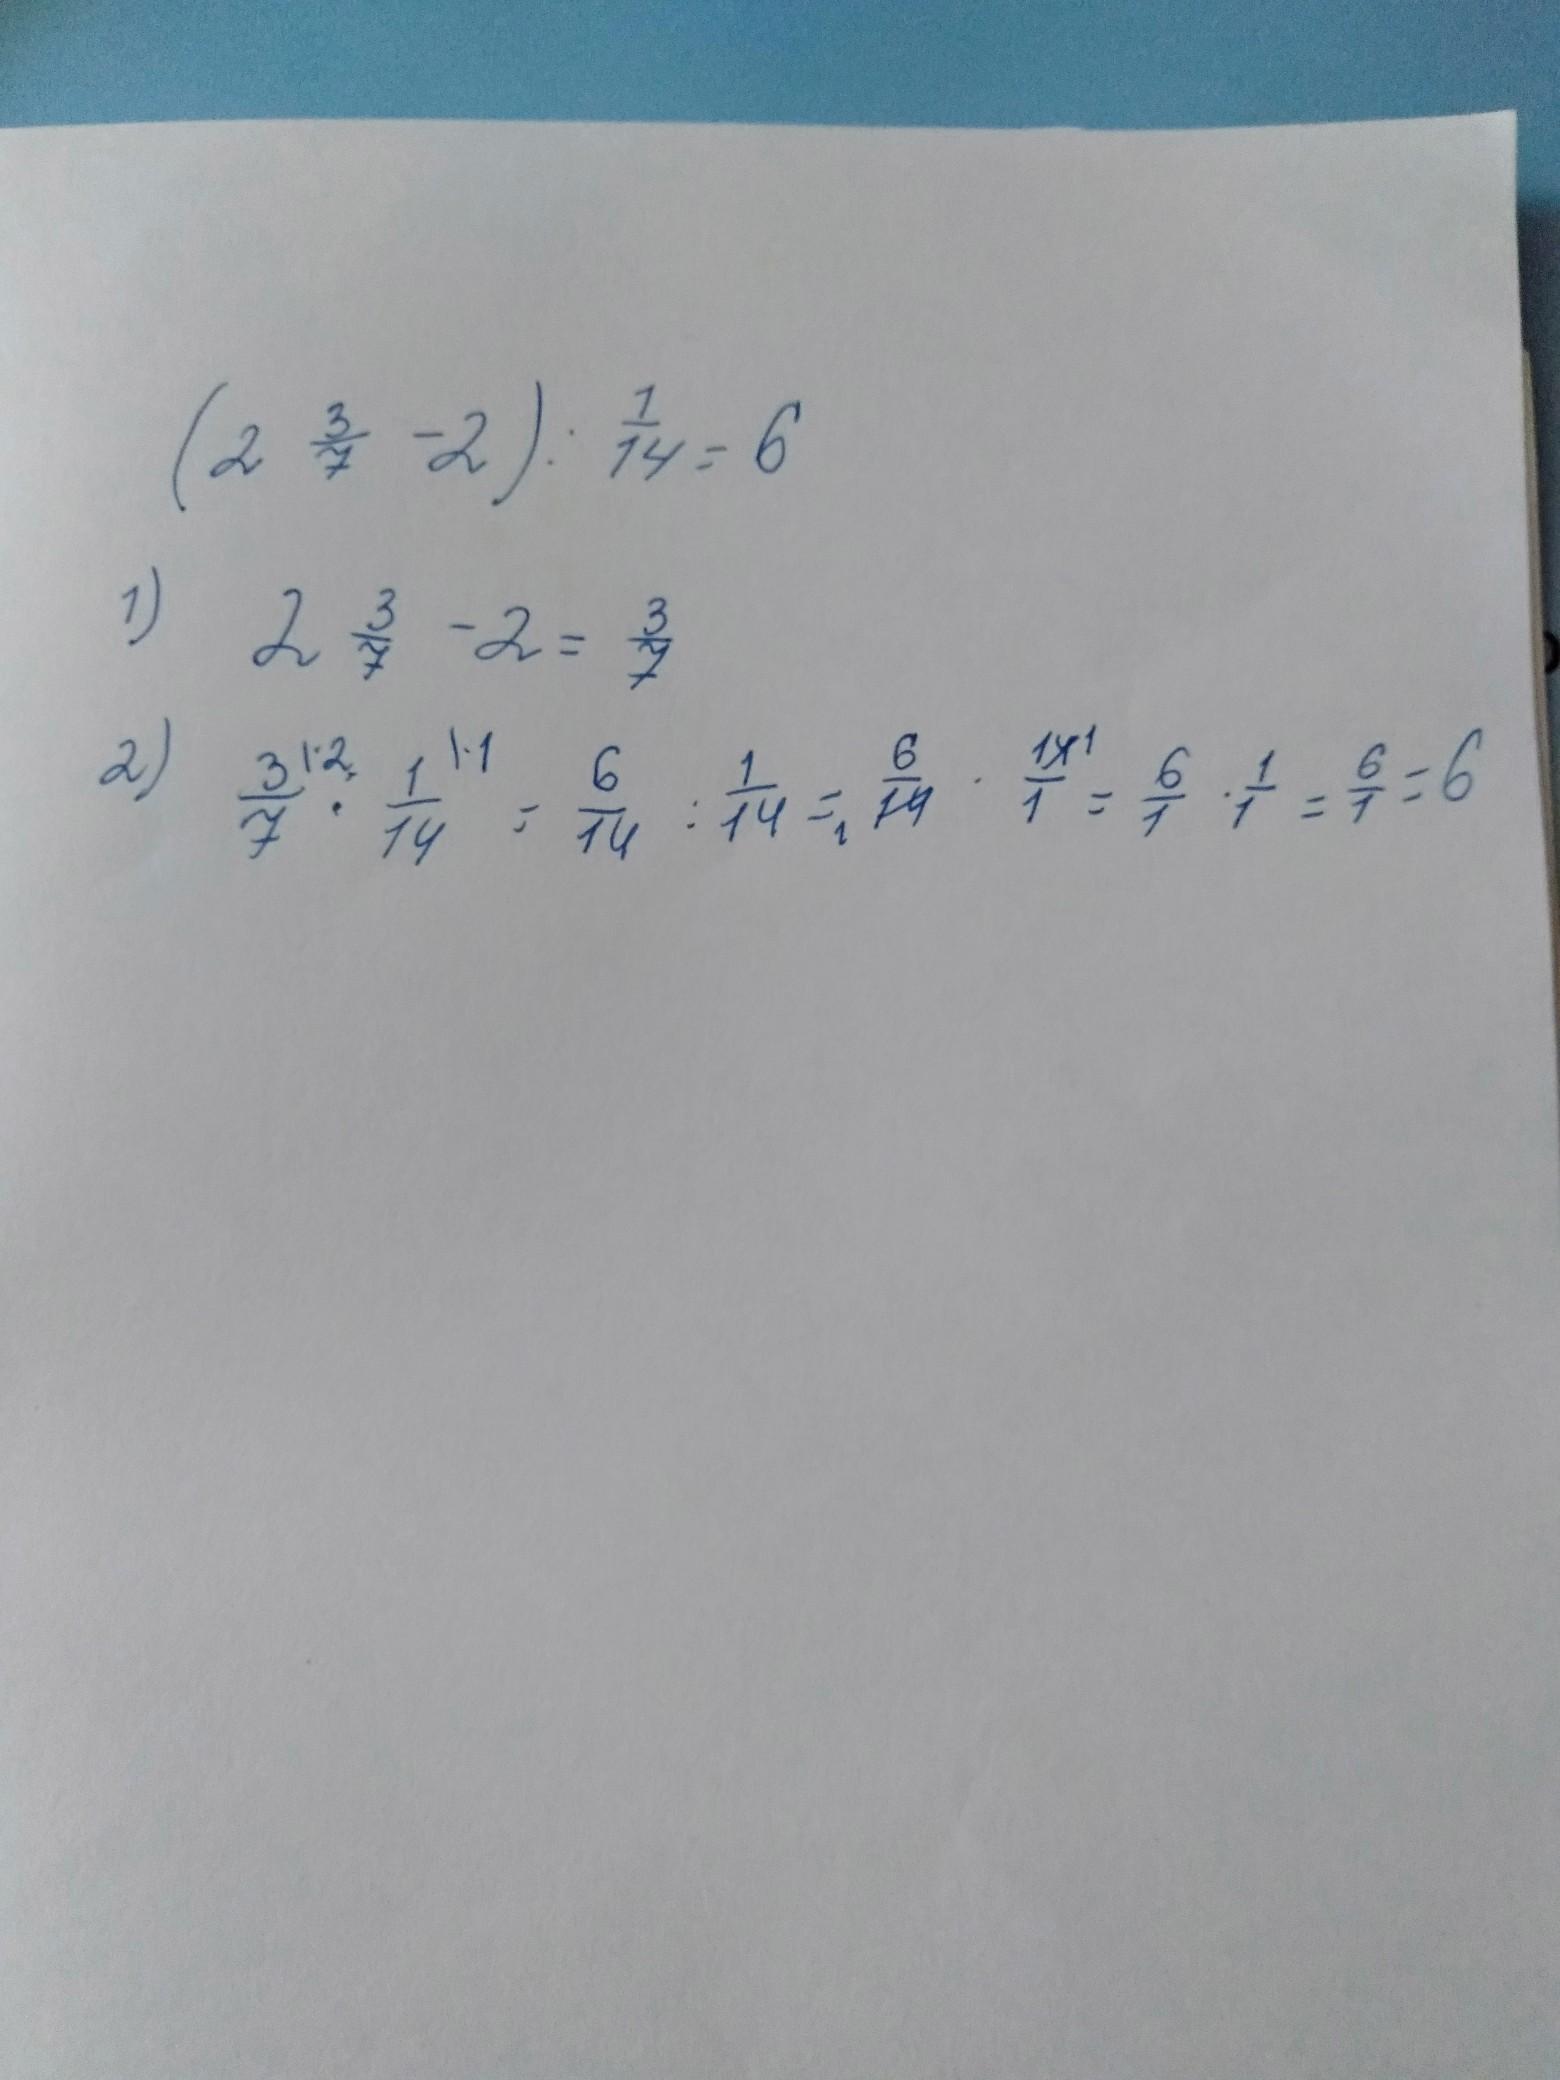 (2 3/7 - 2) : 1/14 = 6
1) 2 3/7 - 2 = 3/7
2) 3/7 |·2 : 1/14 |·1 = 6/14 : 1/14 = 6/14 1 · 14/1 1 = 6/1 · 1/1 = 6/1 = 6